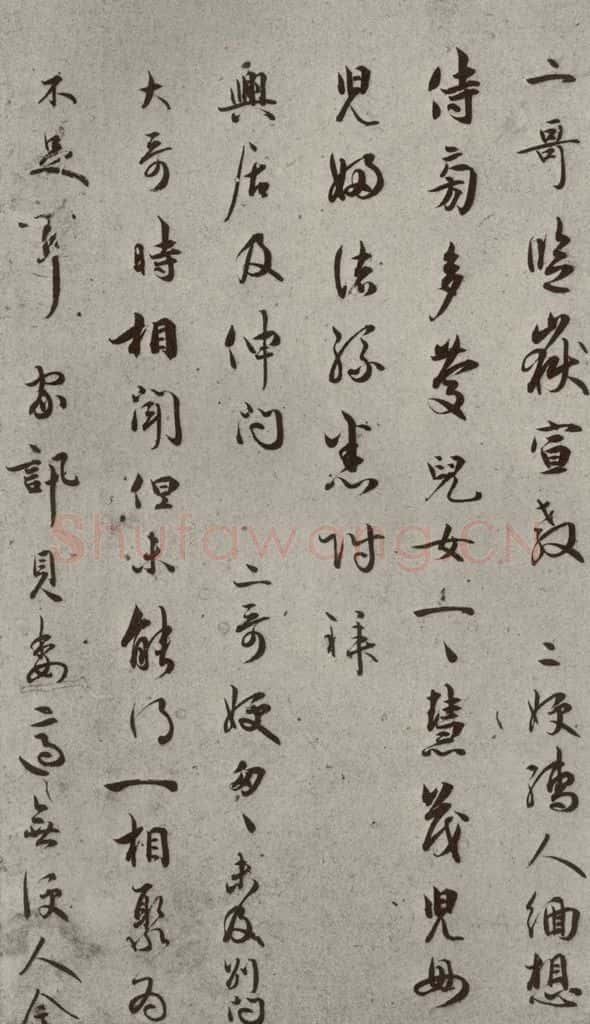 二哥監嶽宣教 二嫂孺人緬想
侍旁多慶兒女一一慧茂兒母
兒婦諸孫悉附拜
興居及伸問 二哥嫂匆匆未及別問
大哥時相聞但未能得一相聚為
不足耳家訊見委二
無便人令
Shufawang.CN